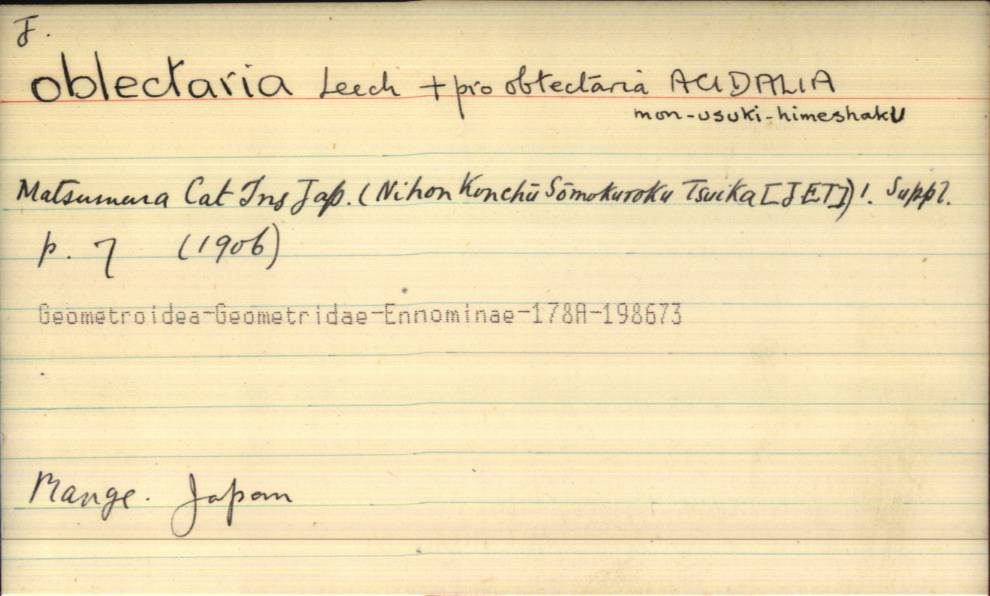 F.
oblectaria Leech + pro obtectaria ACIDALIA
mon-usuki-himeshaku
Matsumura Cat Ins Jap. (Nihon Konchū Sōmokuroku Tsuika [JET]) 1. Suppl.
p. 7 (1906)
Geometroidea-Geometridae-Ennominae-178A-198673
Range. Japan